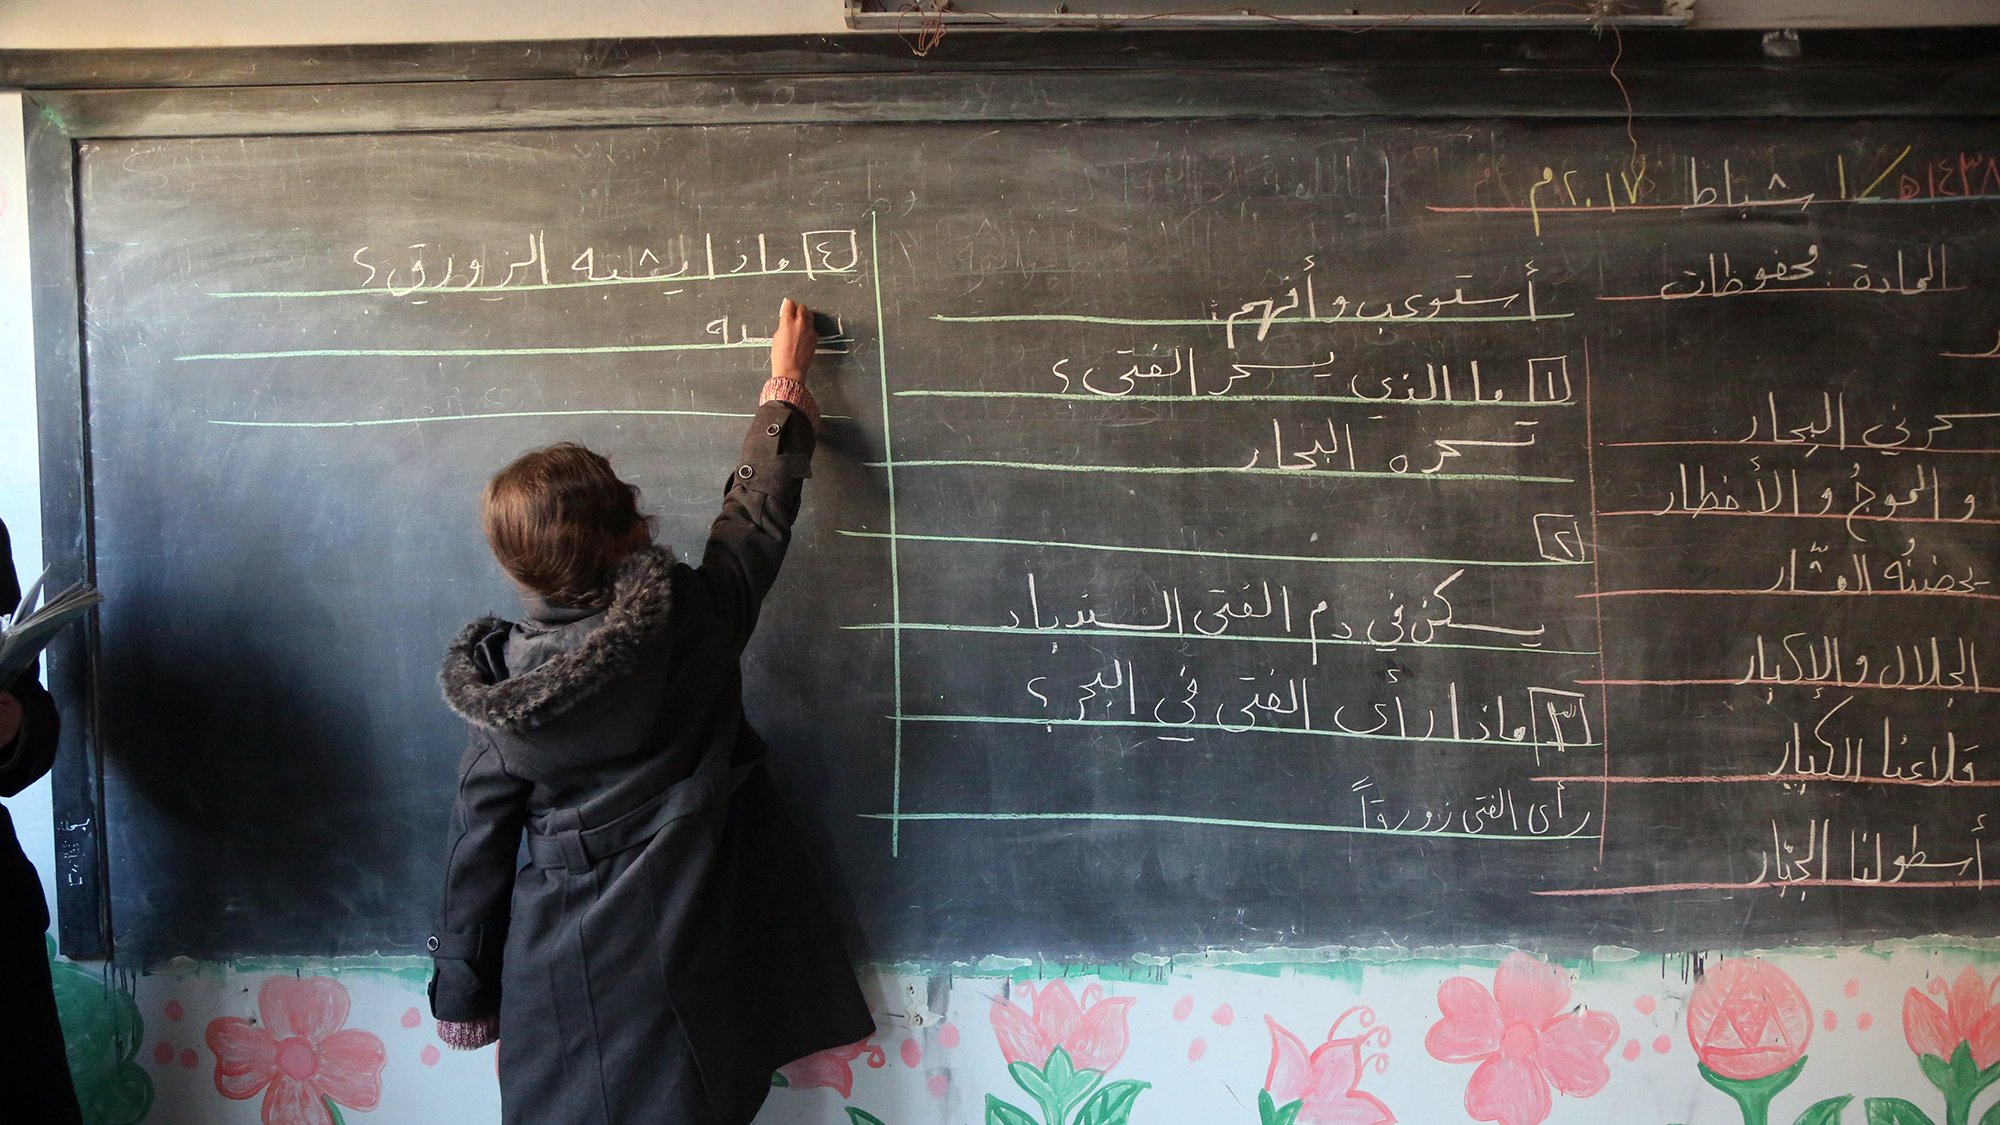 ١٤٣٨هـ / ١ ٨ شباط ٢٠١٧م
المادة : محفوظات
سحرني البِحار
و الموجُ و الأخطار
يحضنُه
الجلال و الإكبار
قلاعنا الكبار
أسطولنا الجبّار
أستوعب و أفهم :
١ ما الذي يسحر الفتى ؟
تسحره البحار
٢
يسكن في دم الفتى السندباد
٣ ماذا رأى الفتى في البحر ؟
رأى الفتى زورقاً
٤ ماذا يشبه الزورق ؟